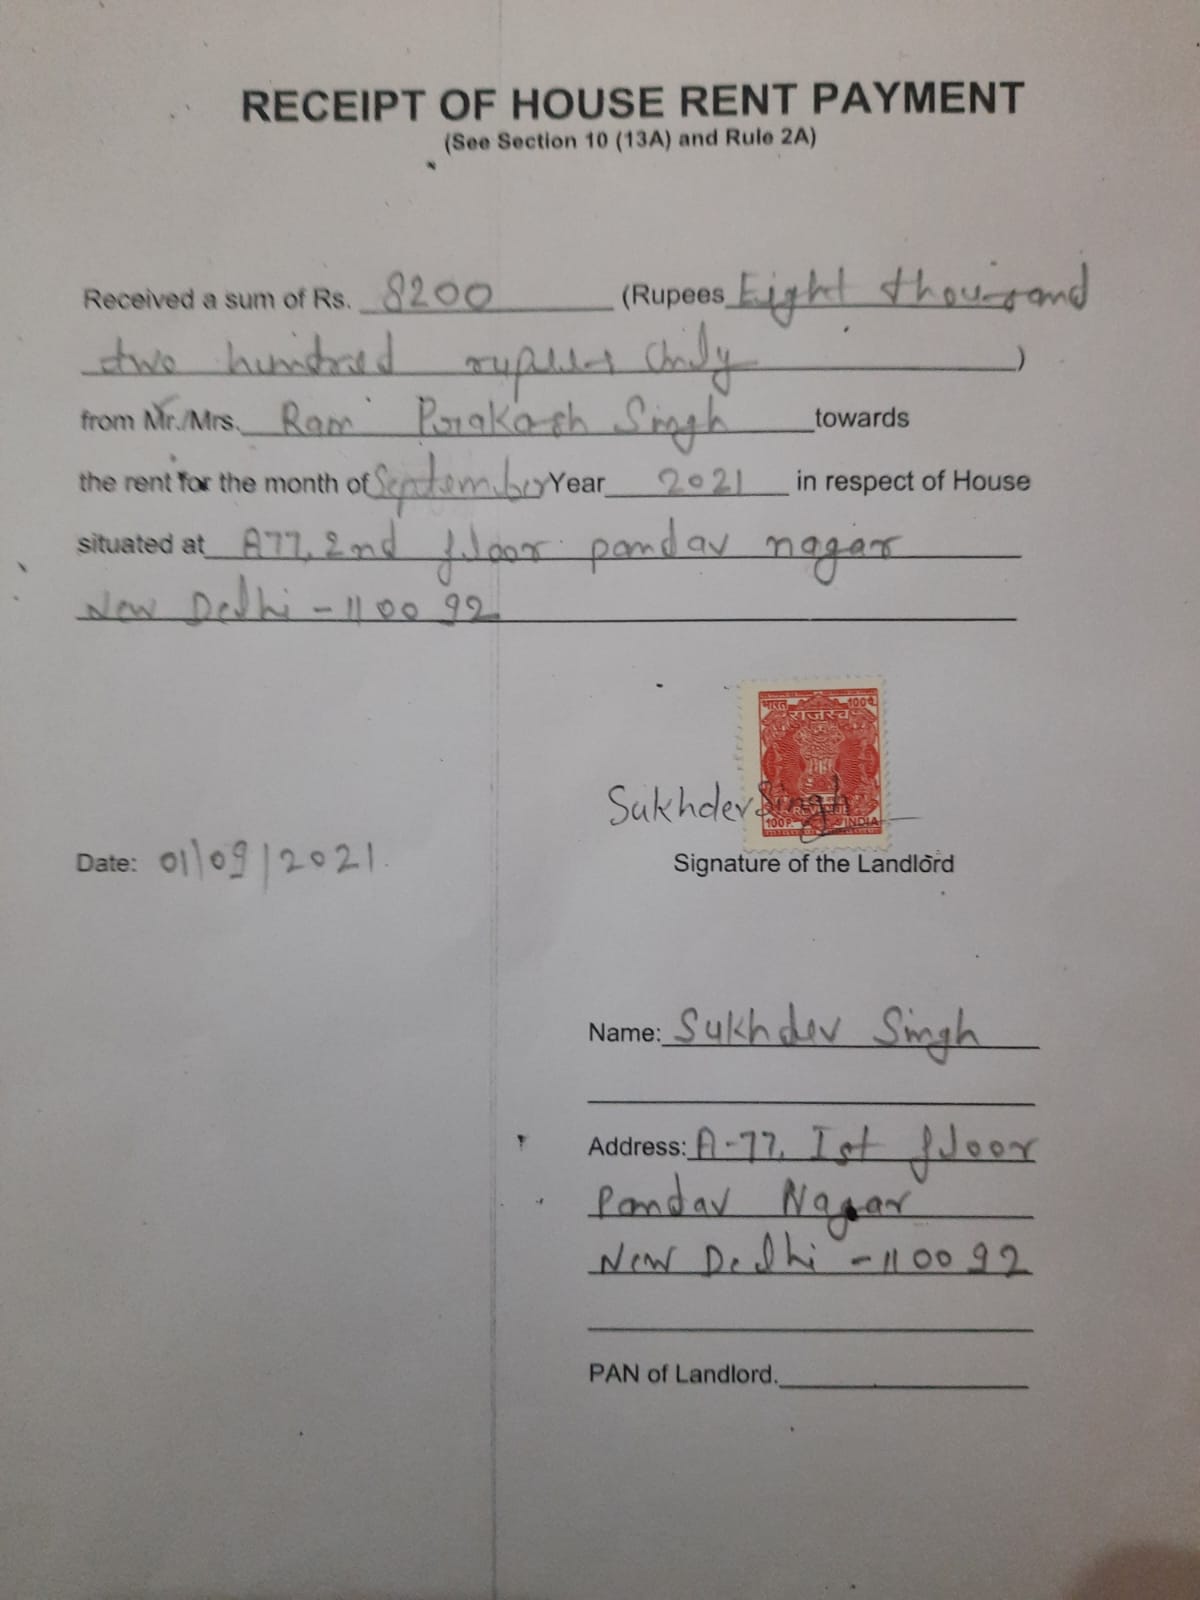 RECEIPT OF HOUSE RENT PAYMENT
(See Section 10 (13A) and Rule 2A)
Received a sum of Rs. 8200 (Rupees Eight thousand
two hundred rupees Only )
from Mr./Mrs. Ram Prakash Singh towards
the rent for the month of September Year 2021 in respect of House
situated at A77, 2nd floor pandav nagar
New Delhi - 110092
भारत 100 पै.
राजस्व
Sukhdev Singh
REVENUE
100 P. INDIA
Date: 01/09/2021. Signature of the Landlord
Name: Sukhdev Singh
Address: A-77, Ist floor
Pandav Nagar
New Delhi - 110092
PAN of Landlord.